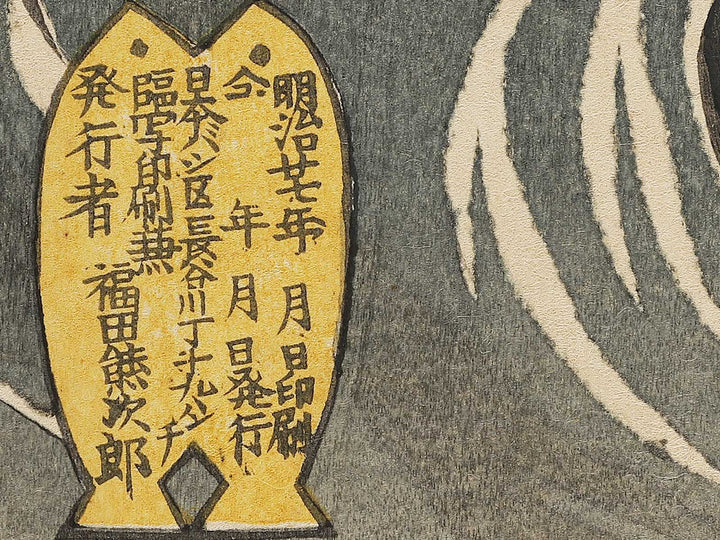 明治廿七年 月 日印刷
仝 年 月 日発行
日本バシ区長谷川丁十九バンチ
臨写印刷兼
発行者 福田熊次郎